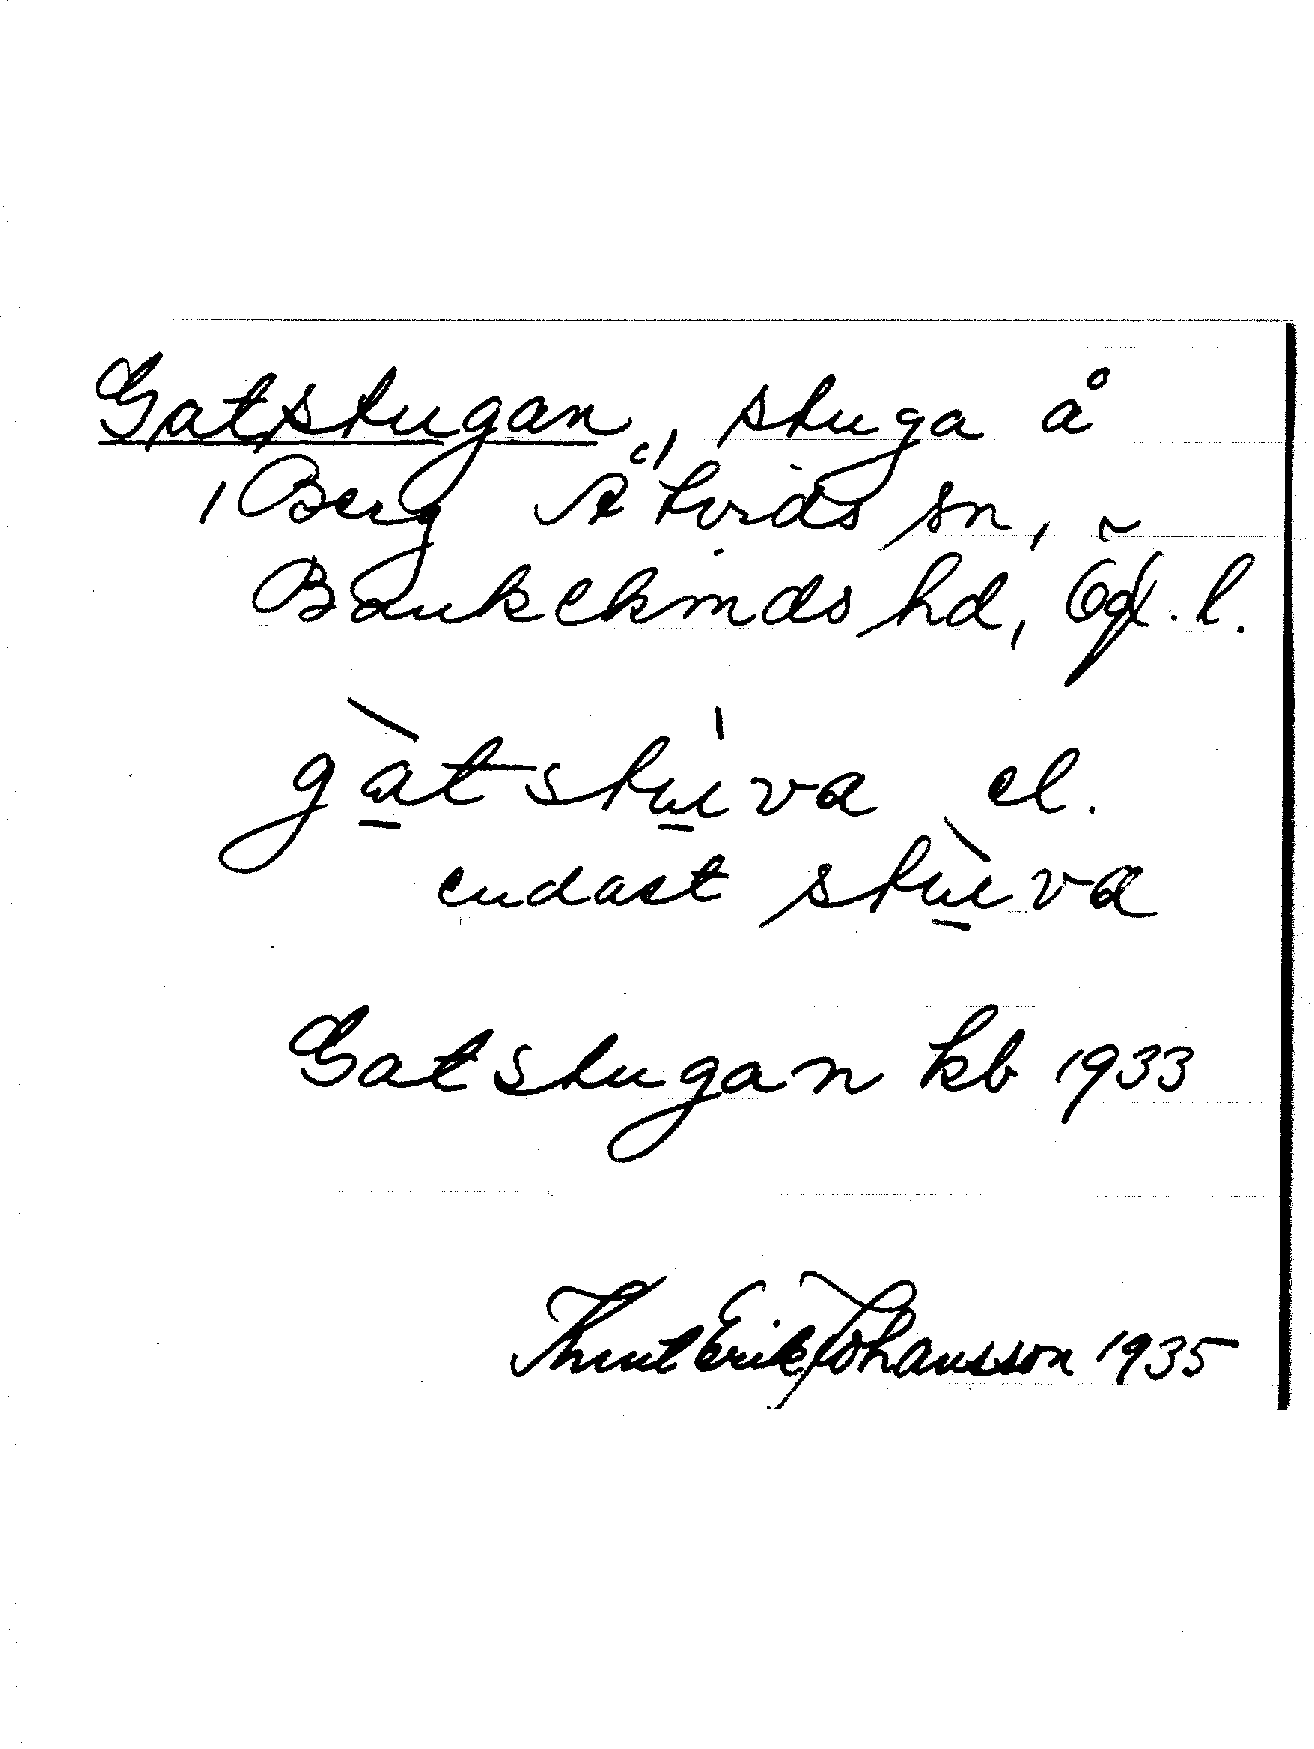 Gatstugan, stuga å
Berg Åtvids sn,
Bankekinds hd, Ögl. l.
gàtstu̍va el.
endast stùva
Gatstugan kb 1933
Knut Erik Johansson 1935